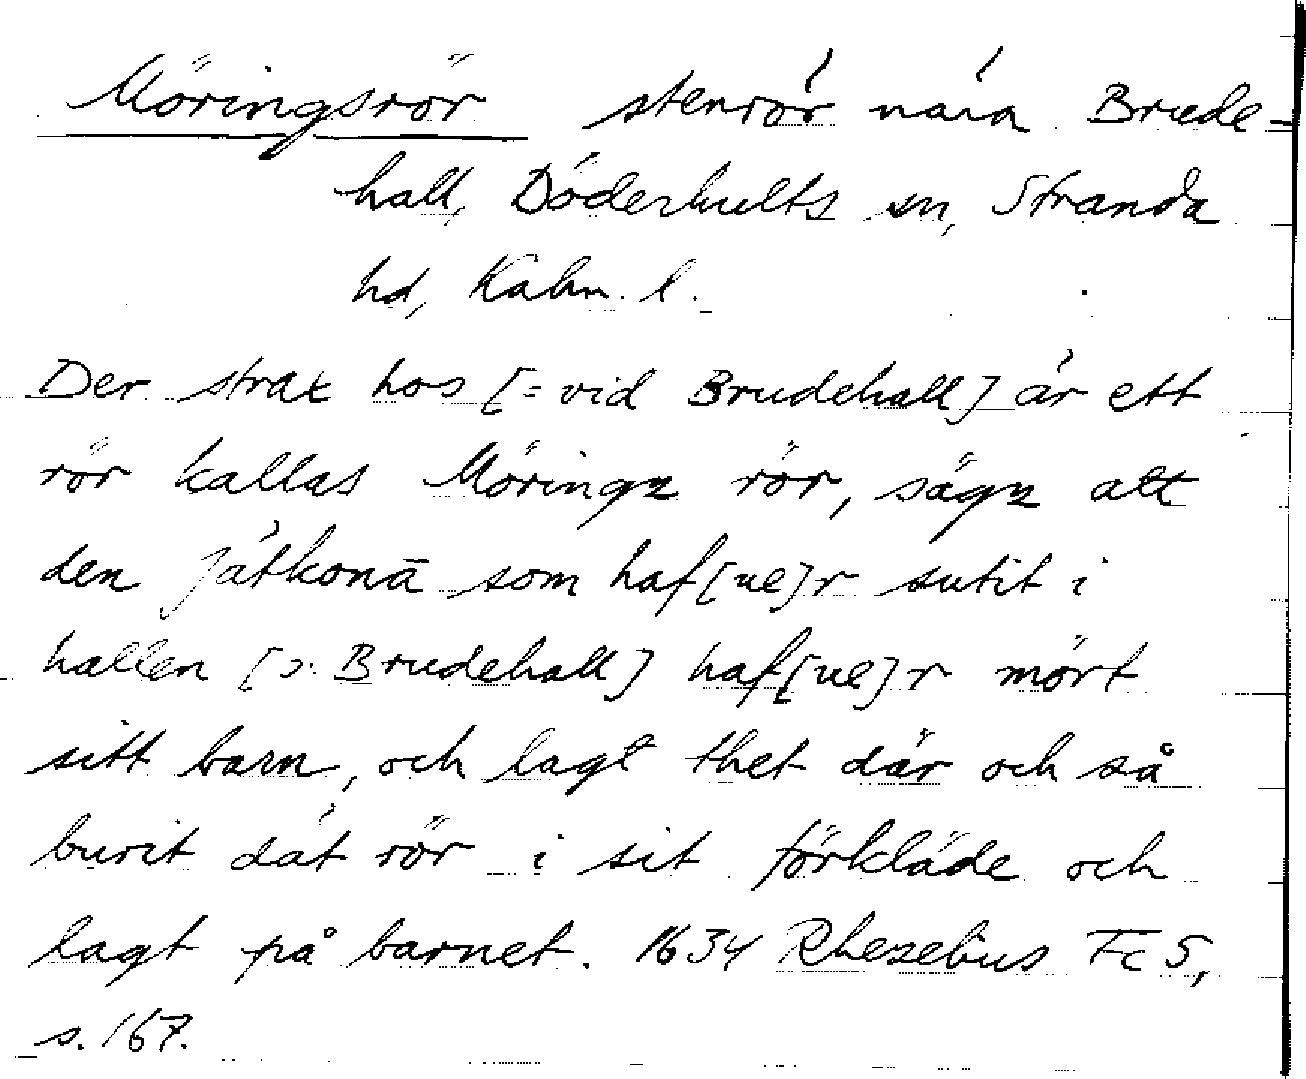 Möringsrör stenrör nära Brude-
hall, Döderhults sn, Stranda
hd, Kalm. l.
Der strax hos [= vid Brudehall] är ett
rör kallas Möringz rör, sägz att
den jätkonā som haf[ue]r sutit i
hallen [ɔ: Brudehall] haf[ue]r mört
sitt barn, och lagt thet där och så
burit dät rör i sit förkläde och
lagt på barnet. 1634 Rhezelius Fc 5,
s. 167.